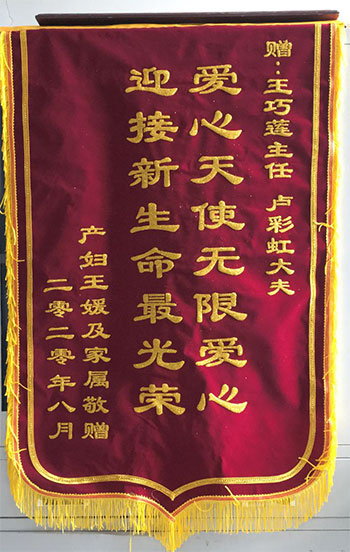 赠：王巧莲主任 卢彩虹大夫
爱心天使无限爱心
迎接新生命最光荣
产妇王媛及家属敬赠
二零二零年八月